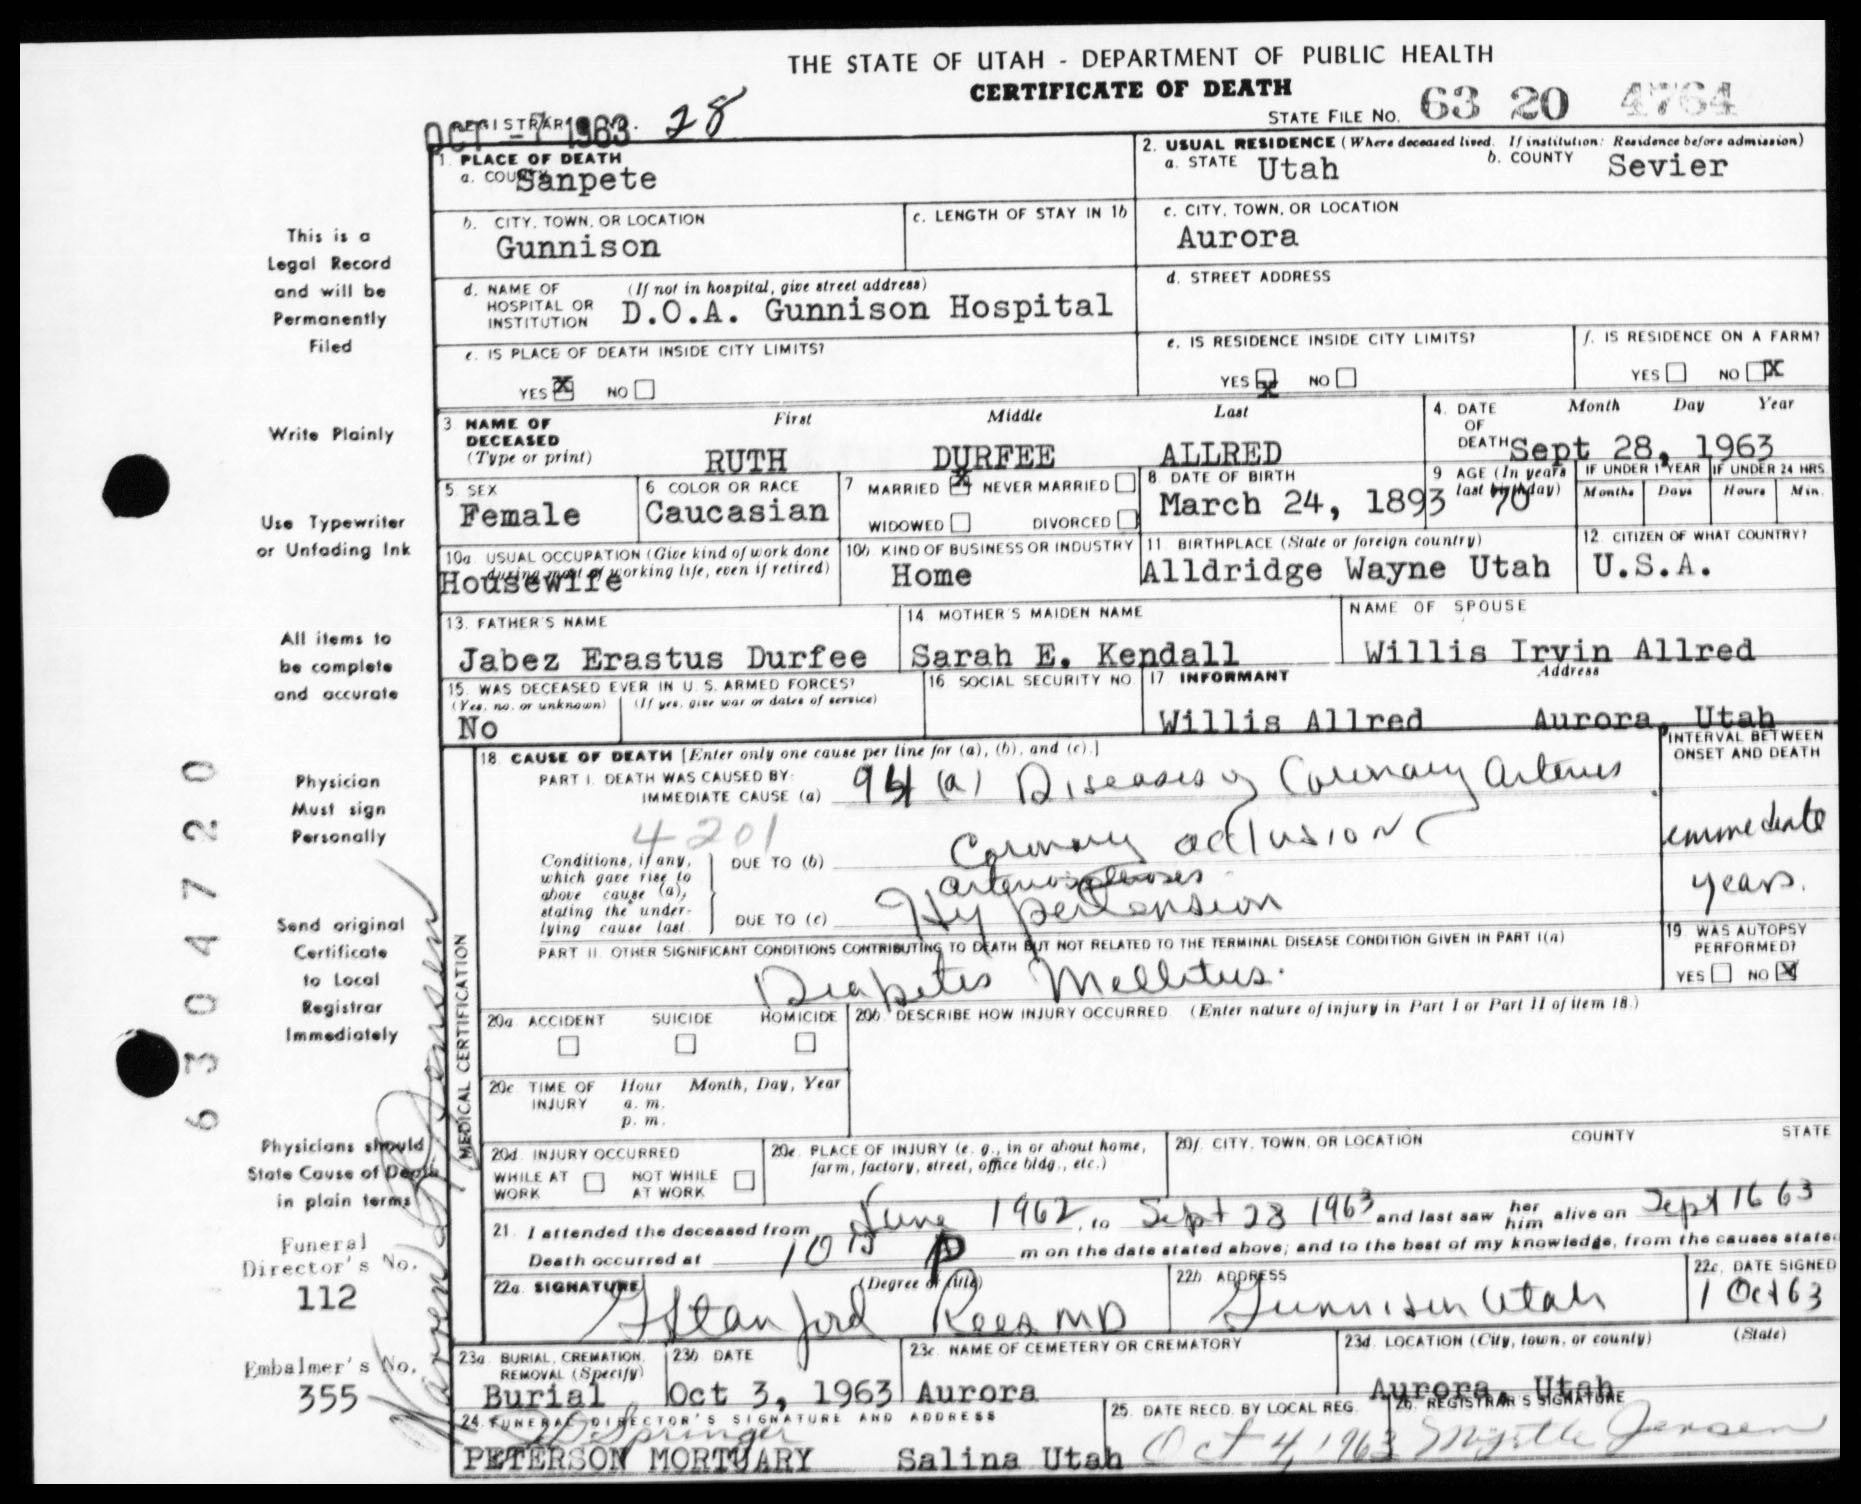 THE STATE OF UTAH - DEPARTMENT OF PUBLIC HEALTH
CERTIFICATE OF DEATH
STATE FILE NO. 63 20 4764
REGISTRAR'S NO. 28
OCT -7 1963
1. PLACE OF DEATH
a. COUNTY Sanpete
2. USUAL RESIDENCE (Where deceased lived. If institution: Residence before admission)
a. STATE Utah b. COUNTY Sevier
b. CITY, TOWN, OR LOCATION
Gunnison
c. LENGTH OF STAY IN 1b
c. CITY, TOWN, OR LOCATION
Aurora
d. NAME OF HOSPITAL OR INSTITUTION (If not in hospital, give street address)
D.O.A. Gunnison Hospital
d. STREET ADDRESS
e. IS PLACE OF DEATH INSIDE CITY LIMITS?
YES X NO
e. IS RESIDENCE INSIDE CITY LIMITS?
YES X NO
f. IS RESIDENCE ON A FARM?
YES NO X
3 NAME OF DECEASED (Type or print)
First Middle Last
RUTH DURFEE ALLRED
4. DATE OF DEATH Month Day Year
Sept 28, 1963
5. SEX
Female
6 COLOR OR RACE
Caucasian
7 MARRIED X NEVER MARRIED
WIDOWED DIVORCED
8. DATE OF BIRTH
March 24, 1893
9 AGE (In years last birthday)
70
IF UNDER 1 YEAR
Months Days
IF UNDER 24 HRS
Hours Min.
10a. USUAL OCCUPATION (Give kind of work done during most of working life, even if retired)
Housewife
10b. KIND OF BUSINESS OR INDUSTRY
Home
11. BIRTHPLACE (State or foreign country)
Alldridge Wayne Utah
12. CITIZEN OF WHAT COUNTRY?
U.S.A.
13. FATHER'S NAME
Jabez Erastus Durfee
14. MOTHER'S MAIDEN NAME
Sarah E. Kendall
NAME OF SPOUSE
Willis Irvin Allred
15. WAS DECEASED EVER IN U. S. ARMED FORCES?
(Yes, no, or unknown) (If yes, give war or dates of service)
No
16 SOCIAL SECURITY NO.
17 INFORMANT Address
Willis Allred Aurora, Utah
18. CAUSE OF DEATH [Enter only one cause per line for (a), (b), and (c).]
INTERVAL BETWEEN ONSET AND DEATH
PART I. DEATH WAS CAUSED BY:
IMMEDIATE CAUSE (a) 94 (a) Diseases of Coronary Arteries
4201
Conditions, if any, which gave rise to above cause (a), stating the underlying cause last.
DUE TO (b) Coronary occlusion
immediate
arteriosclerosis
DUE TO (c) Hypertension
years.
PART II. OTHER SIGNIFICANT CONDITIONS CONTRIBUTING TO DEATH BUT NOT RELATED TO THE TERMINAL DISEASE CONDITION GIVEN IN PART I(a)
Diabetes Mellitus.
19. WAS AUTOPSY PERFORMED?
YES NO X
20a. ACCIDENT SUICIDE HOMICIDE
20b. DESCRIBE HOW INJURY OCCURRED. (Enter nature of injury in Part I or Part II of item 18.)
20c. TIME OF INJURY Hour Month, Day, Year
a. m.
p. m.
20d. INJURY OCCURRED
WHILE AT WORK NOT WHILE AT WORK
20e. PLACE OF INJURY (e. g., in or about home, farm, factory, street, office bldg., etc.)
20f. CITY, TOWN, OR LOCATION COUNTY STATE
21. I attended the deceased from June 1962, to Sept 28 1963 and last saw her him alive on Sept 16 63
Death occurred at 10 15 P m on the date stated above; and to the best of my knowledge, from the causes state
22a. SIGNATURE (Degree or title)
G Stanford Rees MD
22b. ADDRESS
Gunnison Utah
22c. DATE SIGNED
1 Oct 63
23a. BURIAL, CREMATION, REMOVAL (Specify)
Burial
23b. DATE
Oct 3, 1963
23c. NAME OF CEMETERY OR CREMATORY
Aurora
23d. LOCATION (City, town, or county) (State)
Aurora, Utah
24. FUNERAL DIRECTOR'S SIGNATURE AND ADDRESS
Springer
PETERSON MORTUARY Salina Utah
25. DATE RECD. BY LOCAL REG.
Oct 4, 1963
26. REGISTRAR'S SIGNATURE
Myrtle Jensen
MEDICAL CERTIFICATION
This is a
Legal Record
and will be
Permanently
Filed
Write Plainly
Use Typewriter
or Unfading Ink
All items to
be complete
and accurate
Physician
Must sign
Personally
Send original
Certificate
to Local
Registrar
Immediately
Physicians should
State Cause of Death
in plain terms
Funeral
Director's No.
112
Embalmer's No.
355
6304720